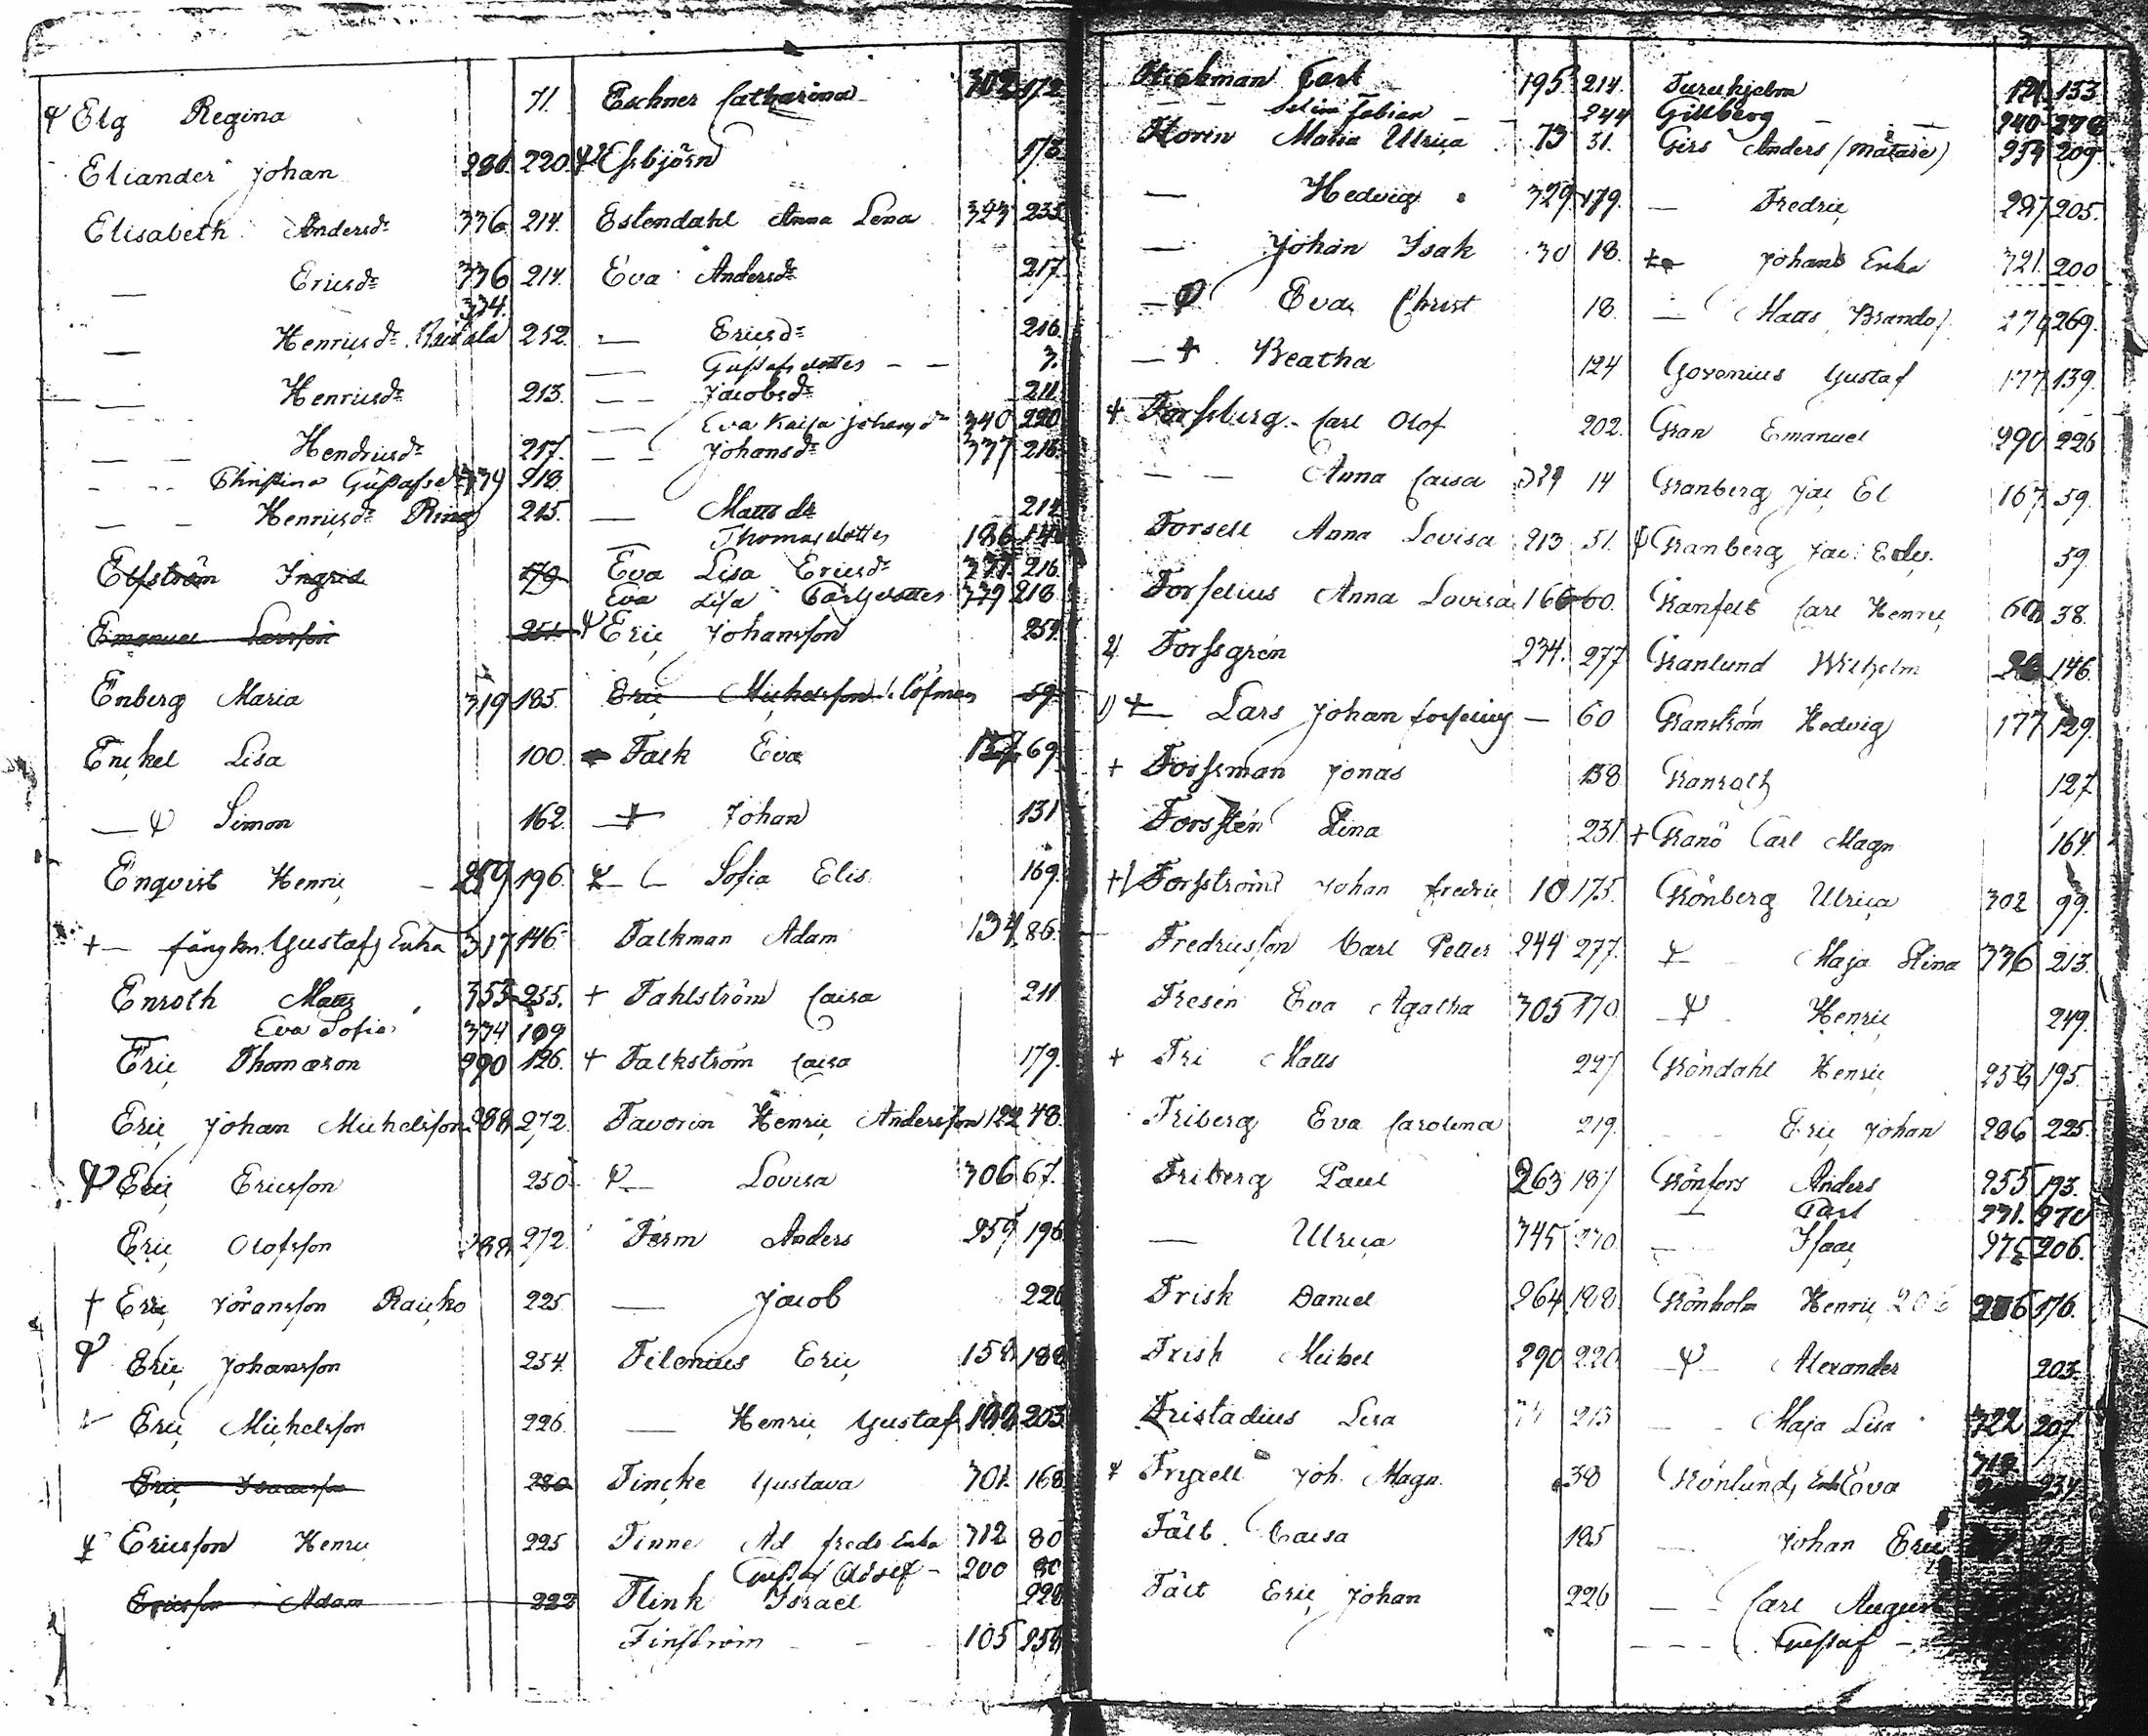 Elg Regina 71.
Eliander Johan 220.
Elisabeth Andersdr 336 214.
— Ericsdr 336 214.
334.
— Henricsdr 252.
— Henricsdr 213.
— — Hendricsdr 217.
— — Christina Gustafsdr 218.
— — Henricsdr Ring 215.
Elfström Ingrid 179
Emanuel Larsson 251.
Enberg Maria 319 185.
Enckel Lisa 100.
— Simon 162.
Enqvist Henric 196.
+ — Gustafs Enka 317 146.
Enroth Matts 353 255.
— Eva Sofia 334 109
Eric Thomason 290 126.
Eric Johan Michelsson 288 272.
Eric Ericsson 250.
Eric Olofsson 288 272.
† Eric Jöransson Raucko 225.
Eric Johansson 254.
Eric Michelsson 226.
Eric Isaacsson 280
Ericsson Henric 225
Ericsson Adam 222
Eschner Catharina 302 172
Essbjörn 173.
Estendahl Anna Lena 343 235
Eva Andersdr 217.
— Ericsdr 216.
— Gustafsdotter — — 3.
— — Jacobsdr 211.
— Eva Kaisa Johansdr 340 220
— — Johansdr 337 216.
— Mattsdr 214
— Thomasdotter 186
Eva Lisa Ericsdr 337. 216.
Eva Lisa Carlsdotter 339 218.
Eric Johansson 259.
Eric Michelsson Löfman 59.
Falk Eva 69.
— Johan 131
— Sofia Elis. 169.
Falkman Adam 134 86.
+ Fahlström Caisa 211
+ Falkström Caisa 179.
Favorin Henric Andersson 122 48.
— Lovisa 306 67.
Ferm Anders 259 196
— Jacob 226
Filenius Eric 158 188
— Henric Gustaf 203.
Fincke Gustava 301. 168
Finne Ad. Freds Enka 312 80
— Gustaf Adolf — 200 80
Flink Israel 228
Finström — — 105 258
Flickman Carl 195 214.
— — Selim Fabian — — 244
Florin Maria Ulrica 73 31.
— Hedvig 329 179.
— Johan Isak 30 18.
— Eva Christ 18.
— + Beatha 124
+ Forssberg Carl Olof 202.
— — Anna Caisa 329 14
Forsell Anna Lovisa 213 51.
Forselius Anna Lovisa 166 60.
Forssgrén 234. 277
— Lars Johan Forselius — 60
+ Forssman Jonas 138
Forsstén Stina 231.
Forsström Johan Fredric 10 175.
Fredricsson Carl Petter 244 277.
Fresén Eva Agatha 305 170
+ Fri Matts 227
Friberg Eva Carolina 219.
Friberg Paul 263 187
— Ulrica 345 270
Frisk Daniel 264 188
Frisk Michel 290 226
Fristadius Lisa 213
Fryxell Joh. Magn. 38
Fält Caisa 185
Fält Eric Johan 226
Furuhjelm 121. 133
Gillberg — — 240 278
Gers Anders (mätare) 254 209.
— Fredric 297 205.
— Johans Enka 321. 200
— Matts Brandof. 269.
Govenius Gustaf 177 139.
Gran Emanuel 290 226
Granberg Jac El 167 59.
Granberg Jac: Edv. 59.
Granfelt Carl Henric 38.
Granlund Wilhelm 146.
Granström Hedvig 177 129.
Granroth 127.
+ Granö Carl Magn 164.
Grönberg Ulrica 302 99.
— Maja Stina 336 213.
— Henric 249.
Gröndahl Henric 195.
— Eric Johan 286 225.
Grönfors Anders 255 193.
— Carl 231. 270
— Isaac 275 206.
Grönholm Henric 206 176.
— Alexander 203.
— Maja Lisa 322 207
Grönlund, Enk. Eva
— Johan Eric
— — Carl August
— — — Gustaf —